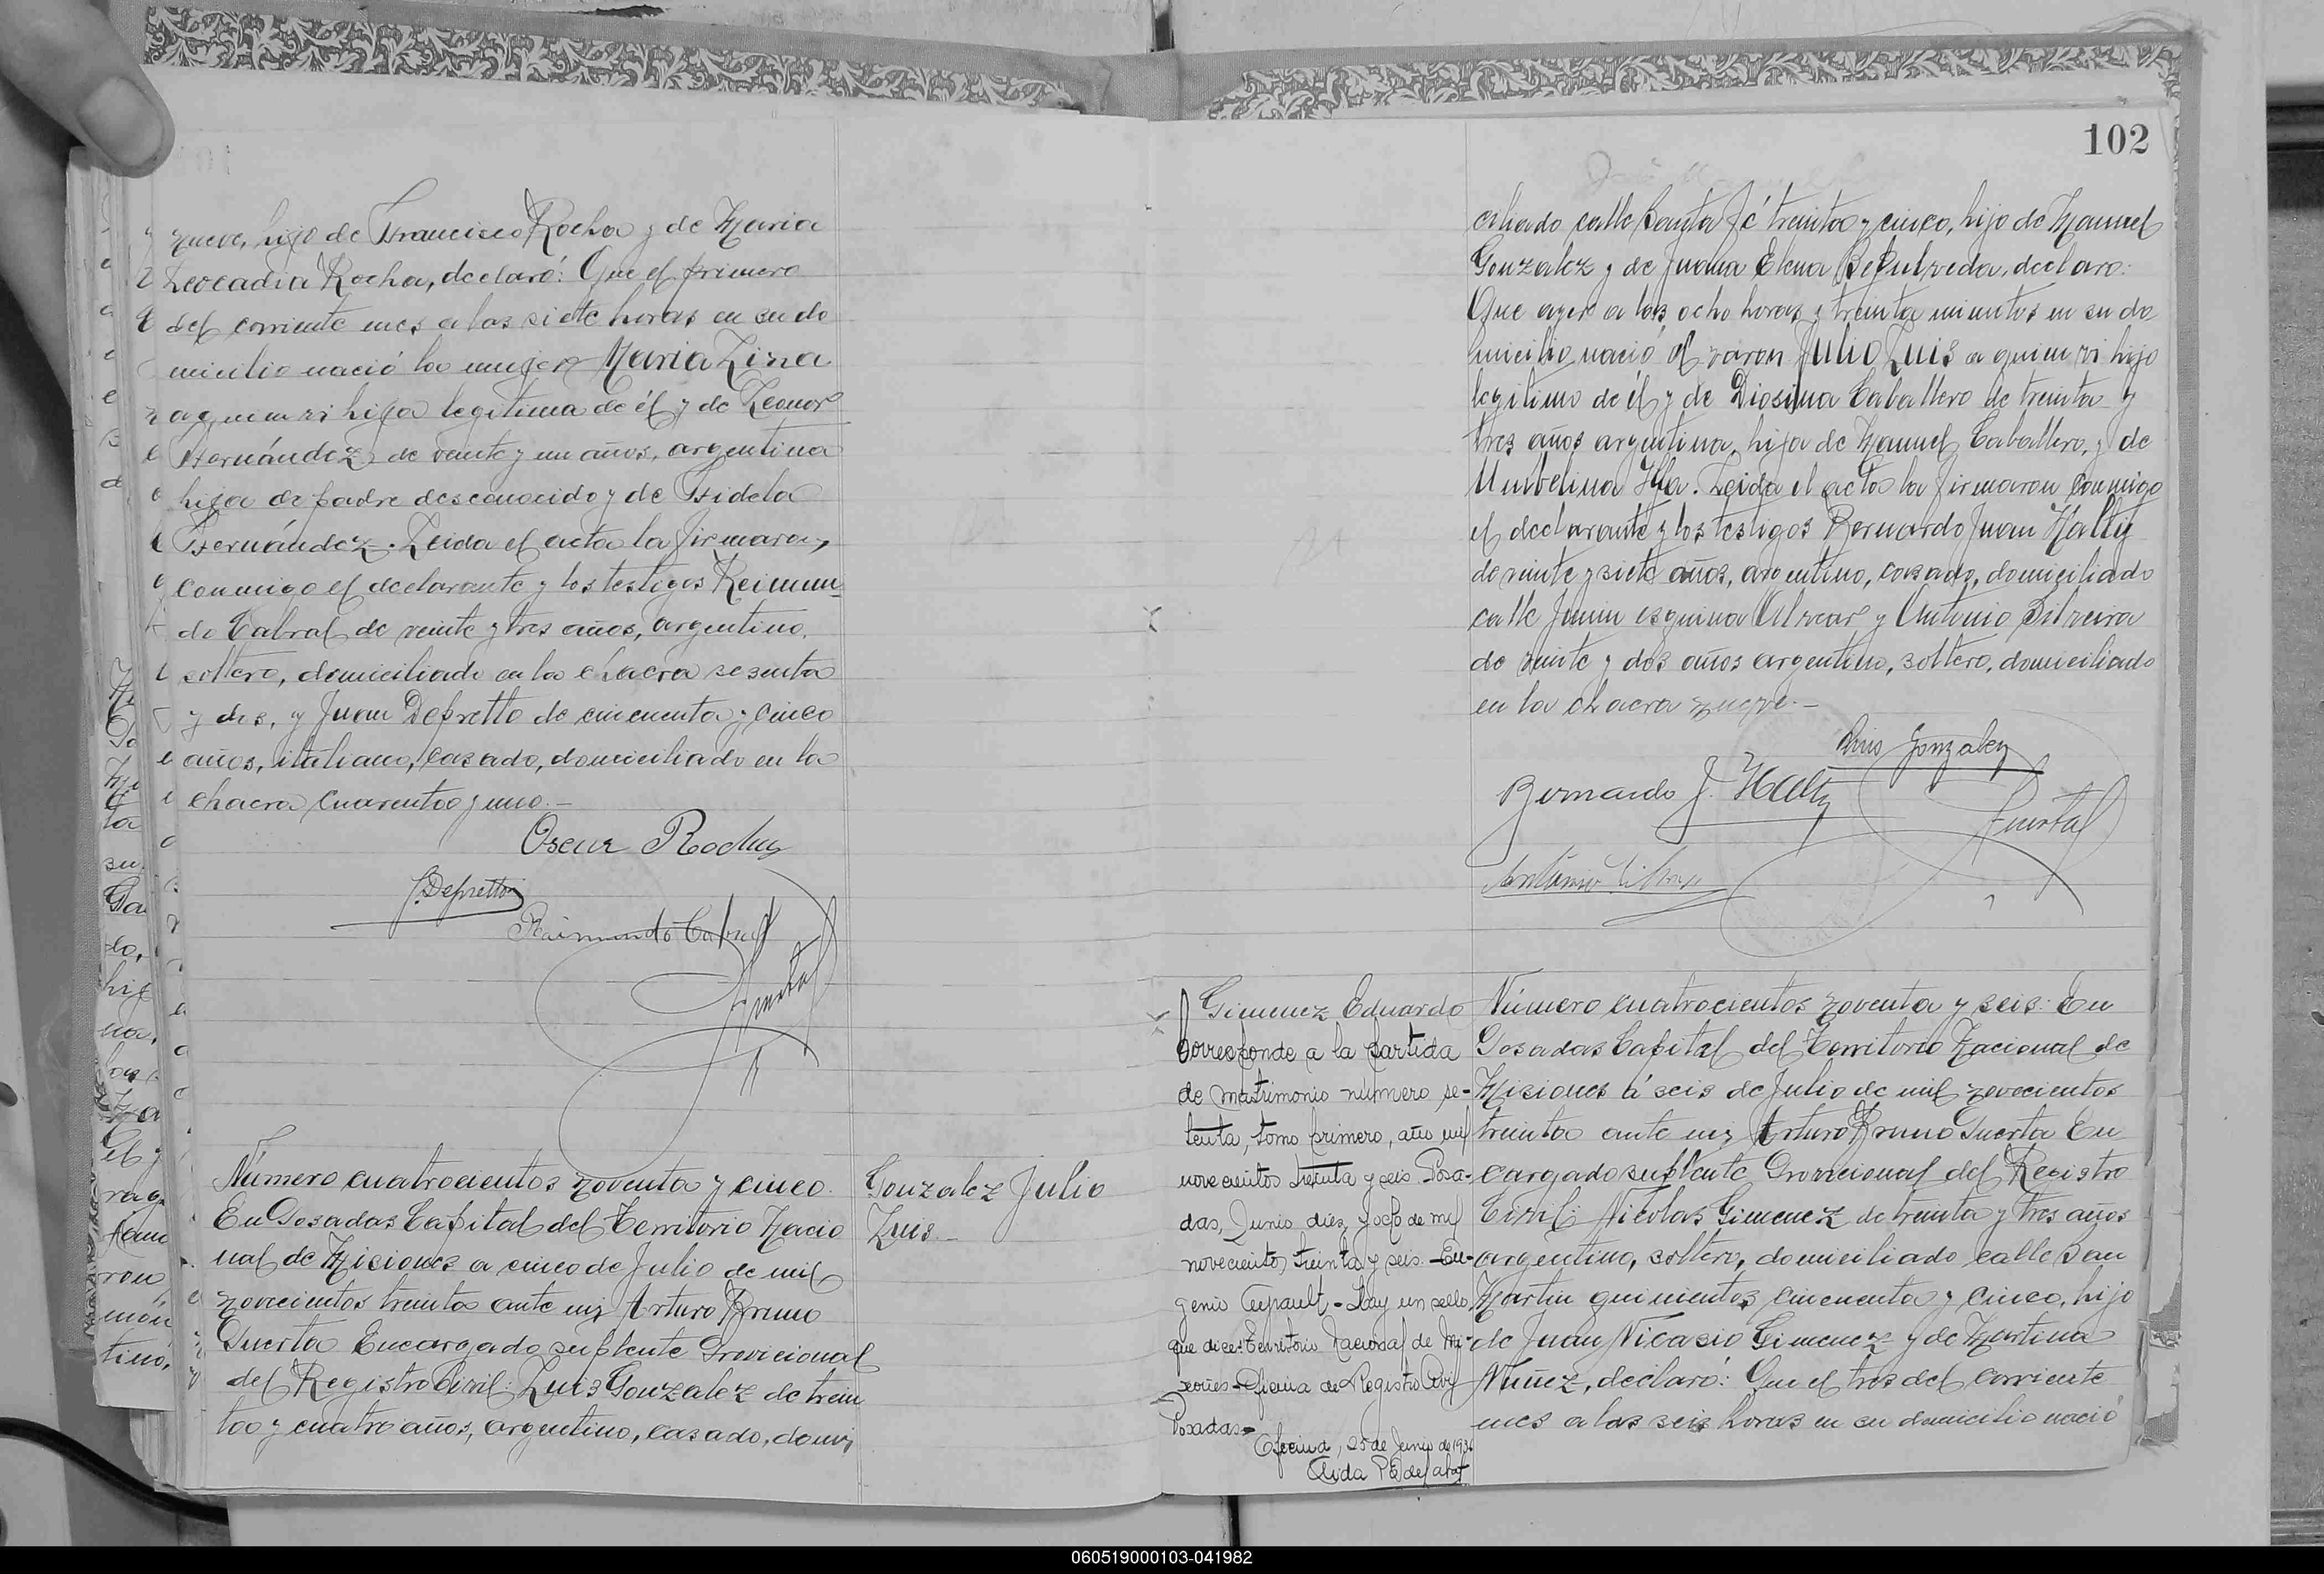 nueve, hijo de Francisco Rocha y de Maria
Leocadia Rocha, declaró: Que el primero
del corriente mes a las siete horas en su do
micilio nació la mujer Maria Lina
a quien vi hija legitima de él y de Leonor
Hernández de veinte y un años, argentina
hija de padre desconocido y de Fidela
Hernández. Leida el acta la firmaron,
conmigo el declarante y los testigos Reimun
do Cabral de veinte y tres años, argentino,
soltero, domiciliado en la chacra sesenta
y dos, y Juan Depretto de cincuenta y cinco
años, italiano, casado, domiciliado en la
chacra cuarenta y uno.-
Oscar Rocha
J. Depretto
Raimundo Cabral
Número cuatrocientos noventa y cinco.
En Posadas Capital del Territorio Nacio
nal de Misiones a cinco de Julio de mil
novecientos treinta ante mi Arturo Bruno
Puerta Encargado suplente Provicional
del Registro Civil: Luis Gonzalez de trein
ta y cuatro años, argentino, casado, domi
Gonzalez Julio
Luis.-
102
ciliado calle Santa Fé treinta y cinco, hijo de Manuel
Gonzalez y de Juana Elena Sepulveda, declaro:
Que ayer a las ocho horas y treinta minutos en su do
micilio nació el varon Julio Luis a quien vi hijo
legitimo de él y de Diosima Caballero de treinta y
tres años argentina, hija de Manuel Caballero, y de
Umbelina Illa. Leida el acta la firmaron conmigo
el declarante y los testigos Bernardo Juan Halty
de veinte y siete años, argentino, casado, domiciliado
calle Junin esquina Alvear y Antonio Silveira
de veinte y dos años argentino, soltero, domiciliado
en la chacra nueve.-
Luis Gonzalez
Bernardo J. Halty
Puerta
Antonio Silveira
Gimenez Eduardo
Corresponde a la partida
de matrimonio numero se-
tenta, tomo primero, año mil
novecientos treinta y seis. Posa-
das, Junio diez y ocho de mil
novecientos treinta y seis. Eu-
genio - Hay un sello
que dice: Territorio Nacional de Mi-
siones - Oficina de Registro Civil
Posadas.-
Oficina, 25 de Junio de 1936
Aida
Número cuatrocientos noventa y seis: En
Posadas Capital del Territorio Nacional de
Misiones á seis de Julio de mil novecientos
treinta ante mi Arturo Bruno Puerta En
cargado suplente Provicional del Registro
Civil: Nicolas Gimenez de treinta y tres años
argentino, soltero, domiciliado calle San
Martin quinientos cincuenta y cinco, hijo
de Juan Nicasio Gimenez y de Martina
Nuñez, declaró: Que el tres del corriente
mes a las seis horas en su domicilio nació
060519000103-041982